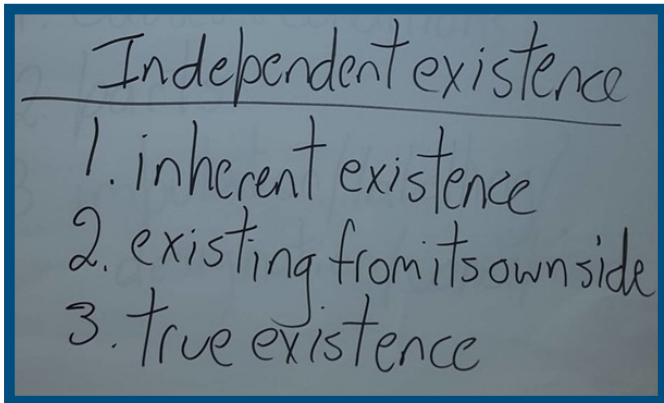 Independent existence
1. inherent existence
2. existing from its own side
3. true existence